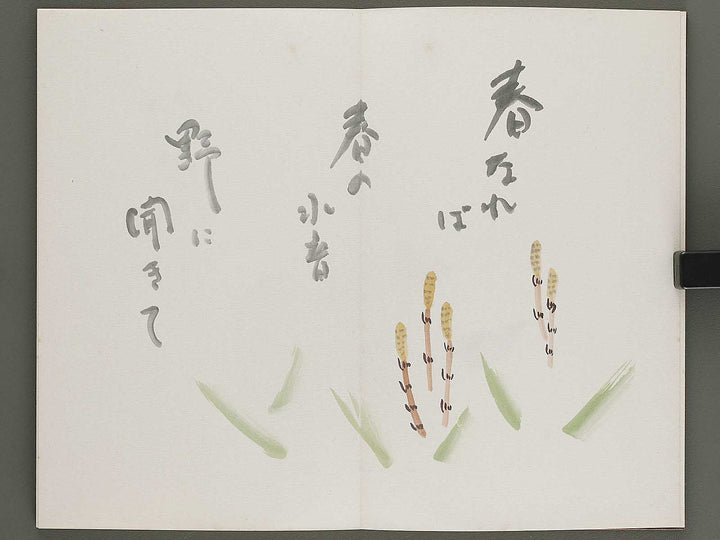 春なれ
ば
春の
水音
野に
聞きて